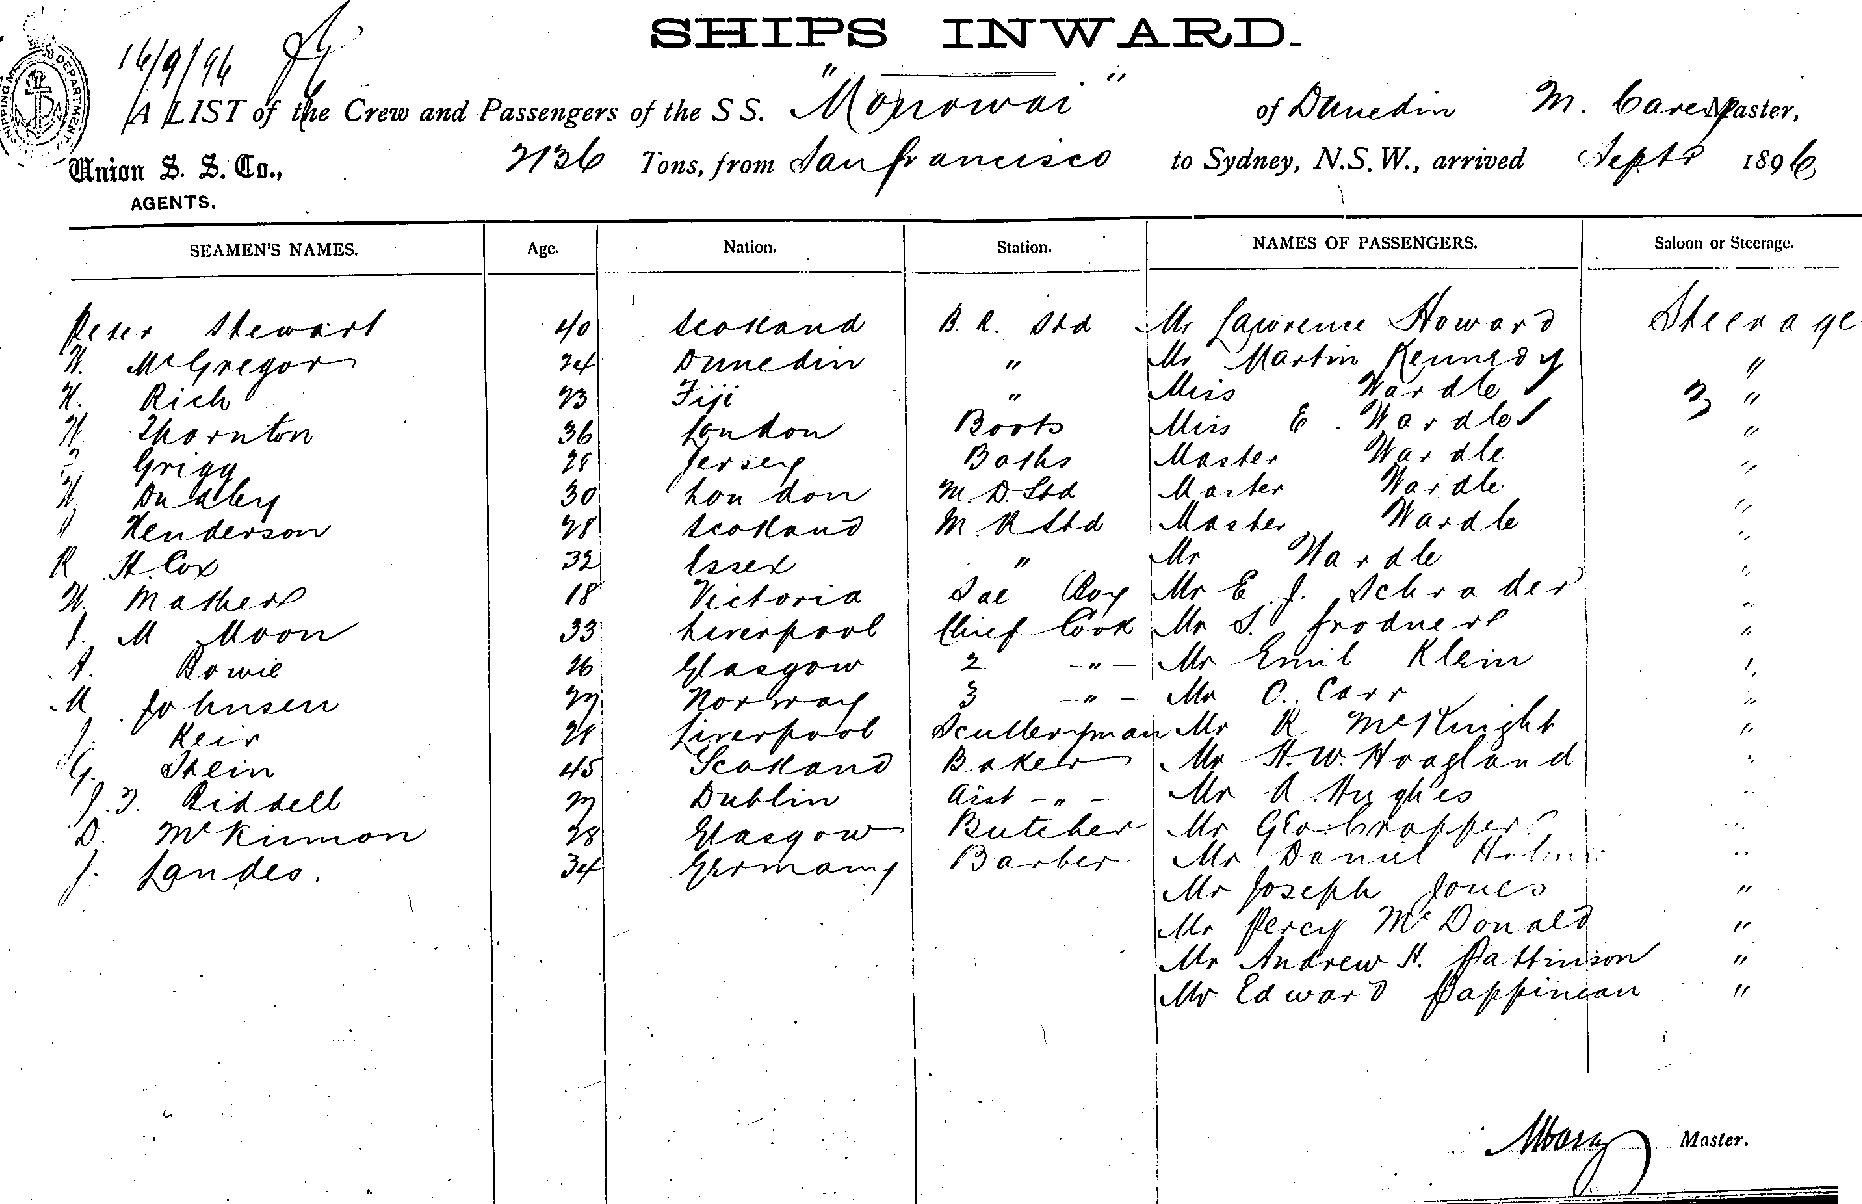 SHIPS INWARD.
16/9/96
A LIST of the Crew and Passengers of the S S. "Monowai" of Dunedin M. Carey Master,
Union S. S. Co., AGENTS. 2136 Tons, from San francisco to Sydney, N.S.W., arrived Sept 1896
SEAMEN'S NAMES. Age. Nation. Station. NAMES OF PASSENGERS. Saloon or Steerage.
Peter Stewart 40 Scotland B. R. Std Mr Lawrence Howard Steerage
W. McGregor 24 Dunedin " Mr Martin Kennedy "
H. Rich 23 Fiji " Miss Wardle 3 "
W. Thornton 36 London Boots Miss E. Wardle "
Grigg 28 Jersey Baths Master Wardle "
W Dudley 30 London M D Std Master Wardle "
Henderson 28 Scotland M R Std Master Wardle "
R H. Cox 32 Essex " Mr Wardle "
W. Mather 18 Victoria Boy Mr E. J. Schrader "
M Moon 33 Liverpool Chief Cook Mr S. "
A. Bowie 26 Glasgow 2 - " - Mr Emil Klein "
M Johnsen 27 Norway 3 - " - Mr C. Carr "
J. Keir 21 Liverpool Sculleryman Mr R McKnight "
G. Stein 45 Scotland Baker Mr H. W. Hoagland "
J. F. Riddell 27 Dublin Asst - " - Mr A Hughes "
D. McKinnon 28 Glasgow Butcher Mr Geo Cropper "
J. Landes. 34 Germany Barber Mr Daniel "
Mr Joseph Jones "
Mr Percy McDonald "
Mr Andrew H. Pattinson "
Mr Edward "
Master.